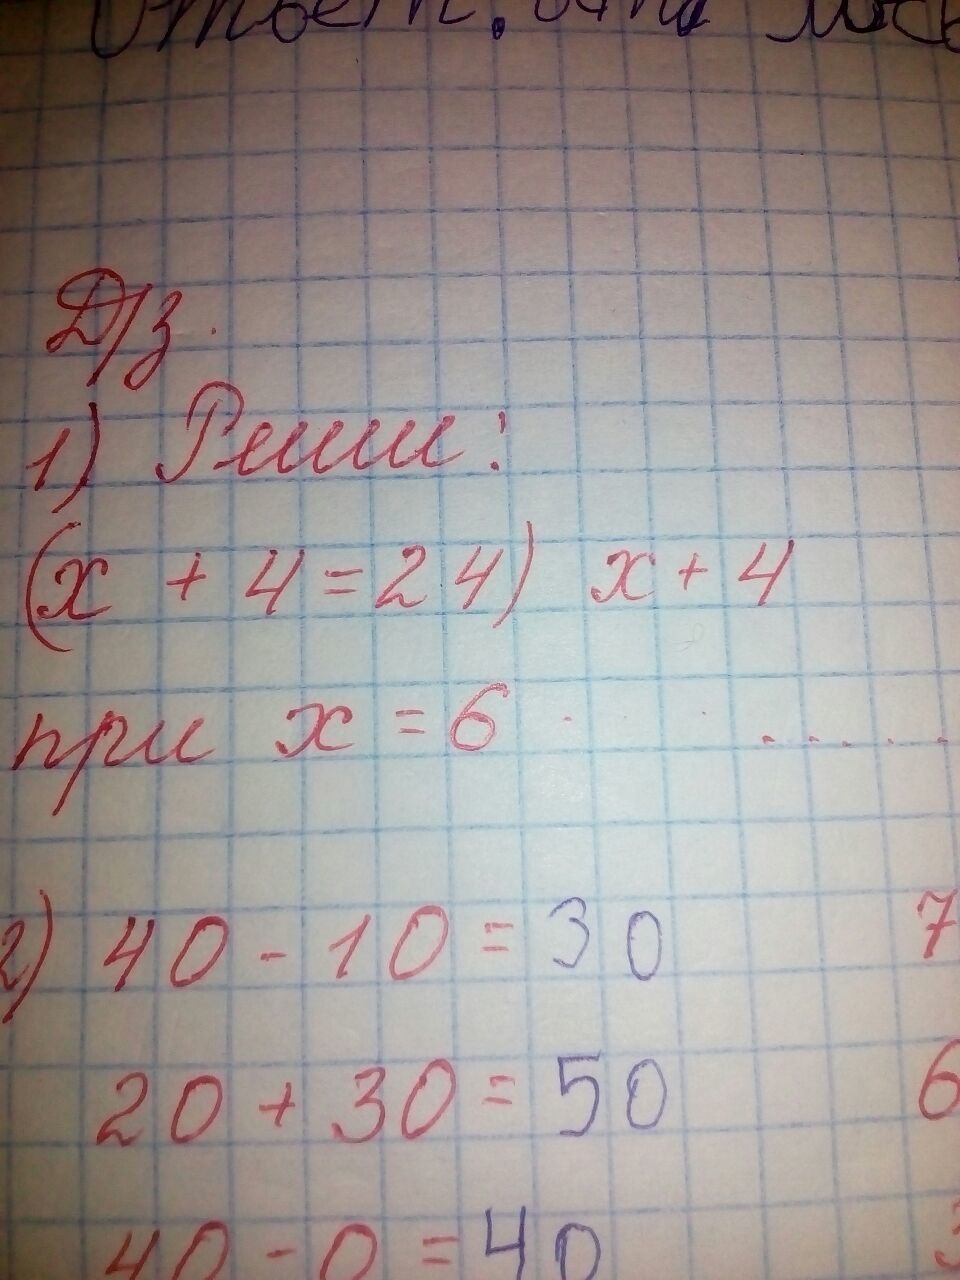 Ответ:
Д/з.
1) Реши:
(х + 4 = 24) х + 4
при х = 6 . . . . . . .
2) 40 - 10 = 30 7
20 + 30 = 50 6
40 - 0 = 40 3